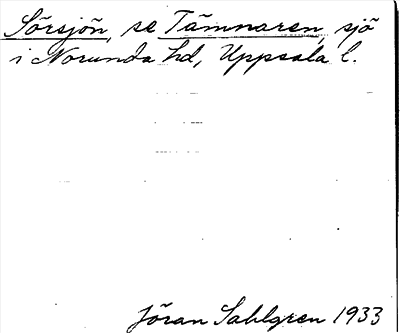 Sörsjön, se Tämnaren, sjö
i Norunda hd, Uppsala l.
Jöran Sahlgren 1933